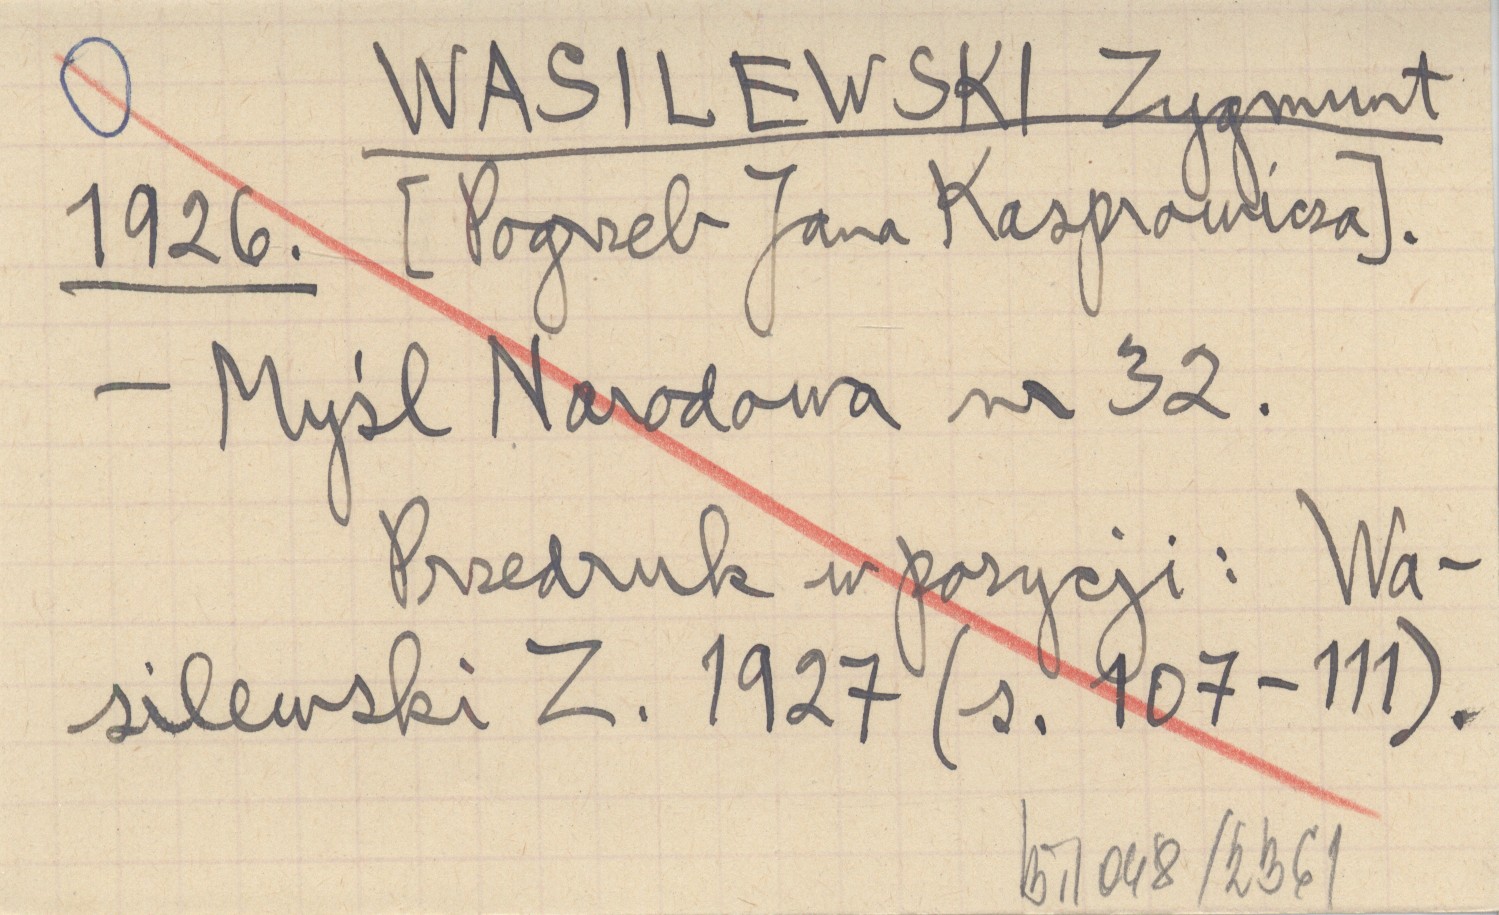 WASILEWSKI Zygmunt
1926. [Pogrzeb Jana Kasprowicza].
– Myśl Narodowa nr 32.
Przedruk w pozycji: Wa-
silewski Z. 1927 (s. 107–111).
048/2361